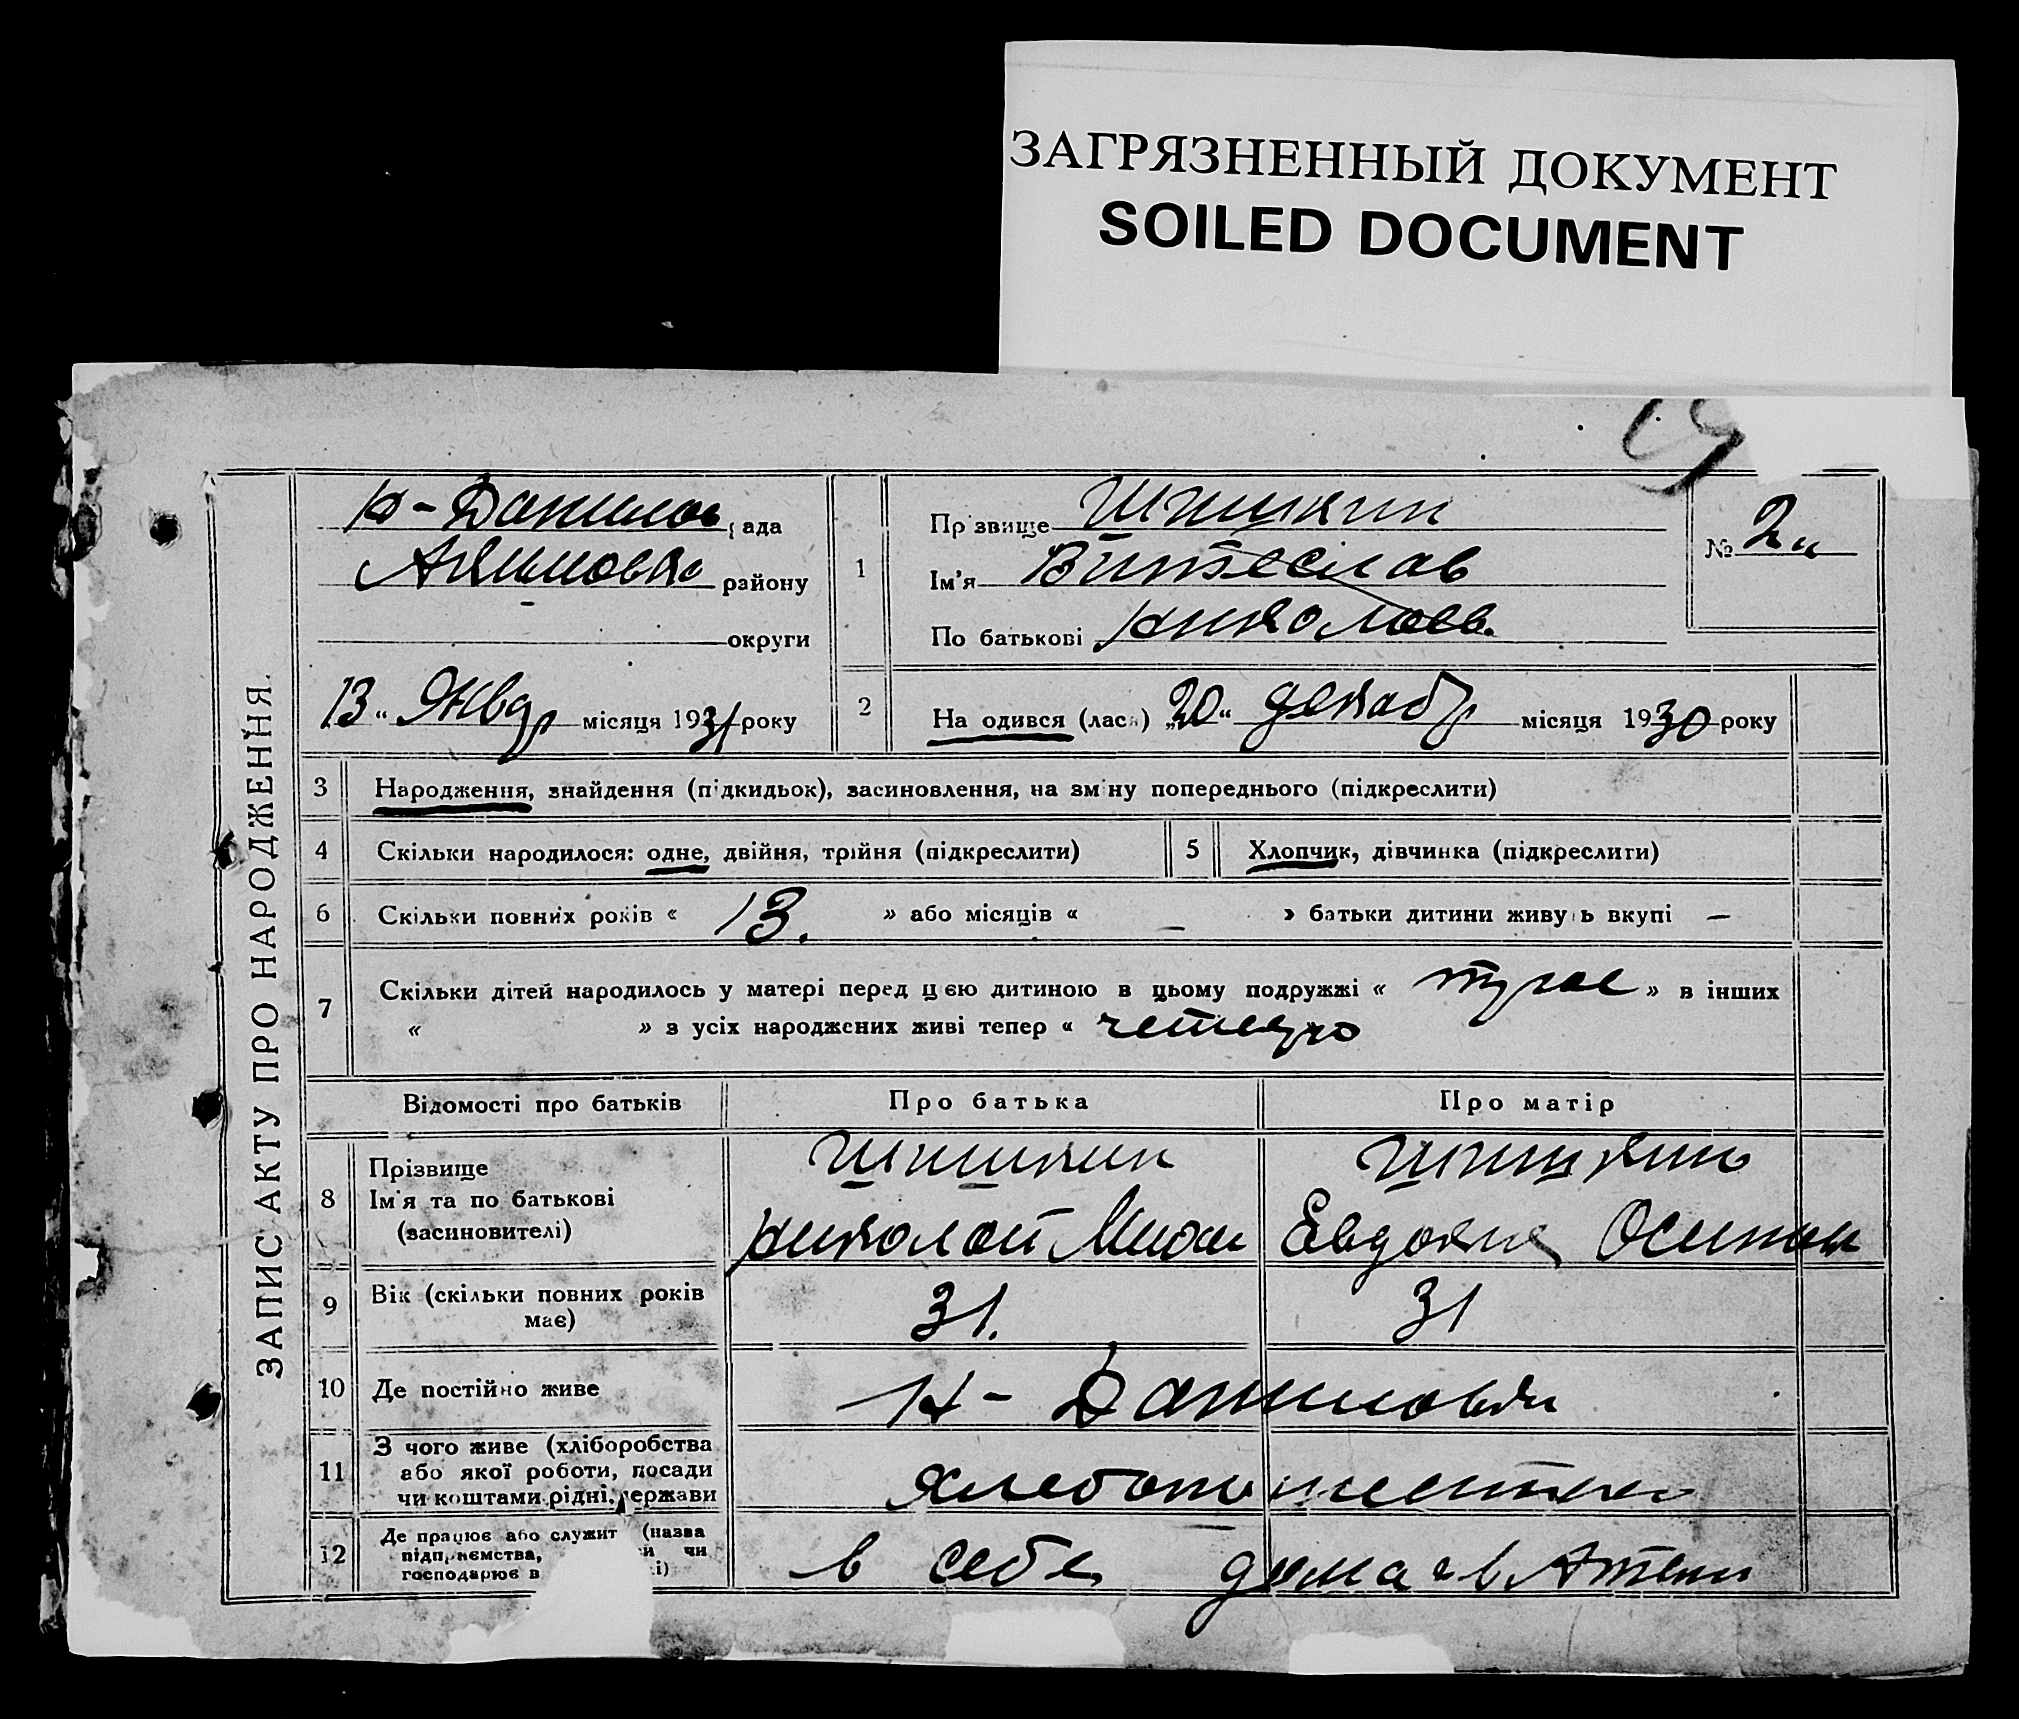 ЗАГРЯЗНЕННЫЙ ДОКУМЕНТ
SOILED DOCUMENT
ЗАПИС АКТУ ПРО НАРОДЖЕННЯ.
Н-Данилов рада
Акимовск району
округи
13 " Январ місяця 1931 року
1
Прізвище Шишкин
Ім'я
По батькові Николаев.
№ 2
2
На одився (лася) „20" декабр місяця 1930 року
3 Народження, знайдення (підкидьок), засиновлення, на зміну попереднього (підкреслити)
4 Скільки народилося: одне, двійня, трійня (підкреслити)
5 Хлопчик, дівчинка (підкреслити)
6 Скільки повних років « 13. » або місяців « — » батьки дитини живуть вкупі —
7 Скільки дітей народилось у матері перед цею дитиною в цьому подружжі « трое » в інших
« » з усіх народжених живі тепер « четверо
Відомості про батьків Про батька Про матір
8 Прізвище
Ім'я та по батькові
(засиновителі)
Шишкин
Николай Михаи
Шишкина
Евдокия Осипов
9 Вік (скільки повних років
має)
31. 31
10 Де постійно живе Н- Даниловки
11 З чого живе (хліборобства
або якої роботи, посади
чи коштами рідні, держави
хлебопашество
12 Де працює або служит (назва
підприємства, й чи
господарює в і)
в себе дома